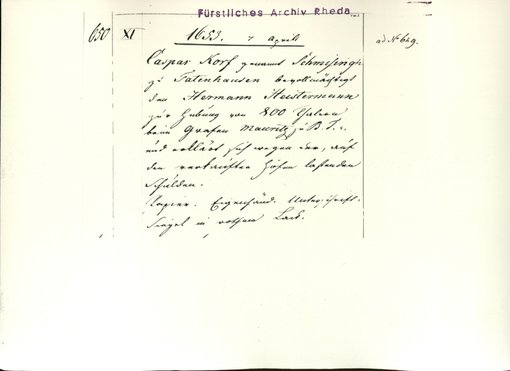 Fürstliches Archiv Rheda
650 XI 1653. 7 April ad No 649.
Caspar Korf genannt Schmisingh
zu Tatenhausen bevollmächtigt
den Hermann Heistermann
zur Hebung von 800 Thalern
beim Grafen Mauritz zu B. T. 
und erklärt sich wegen der, auf
den verkauften Höfen lastenden
Schulden.
Papier. Eigenhänd. Unterschrift.
Siegel in rothem Lack.